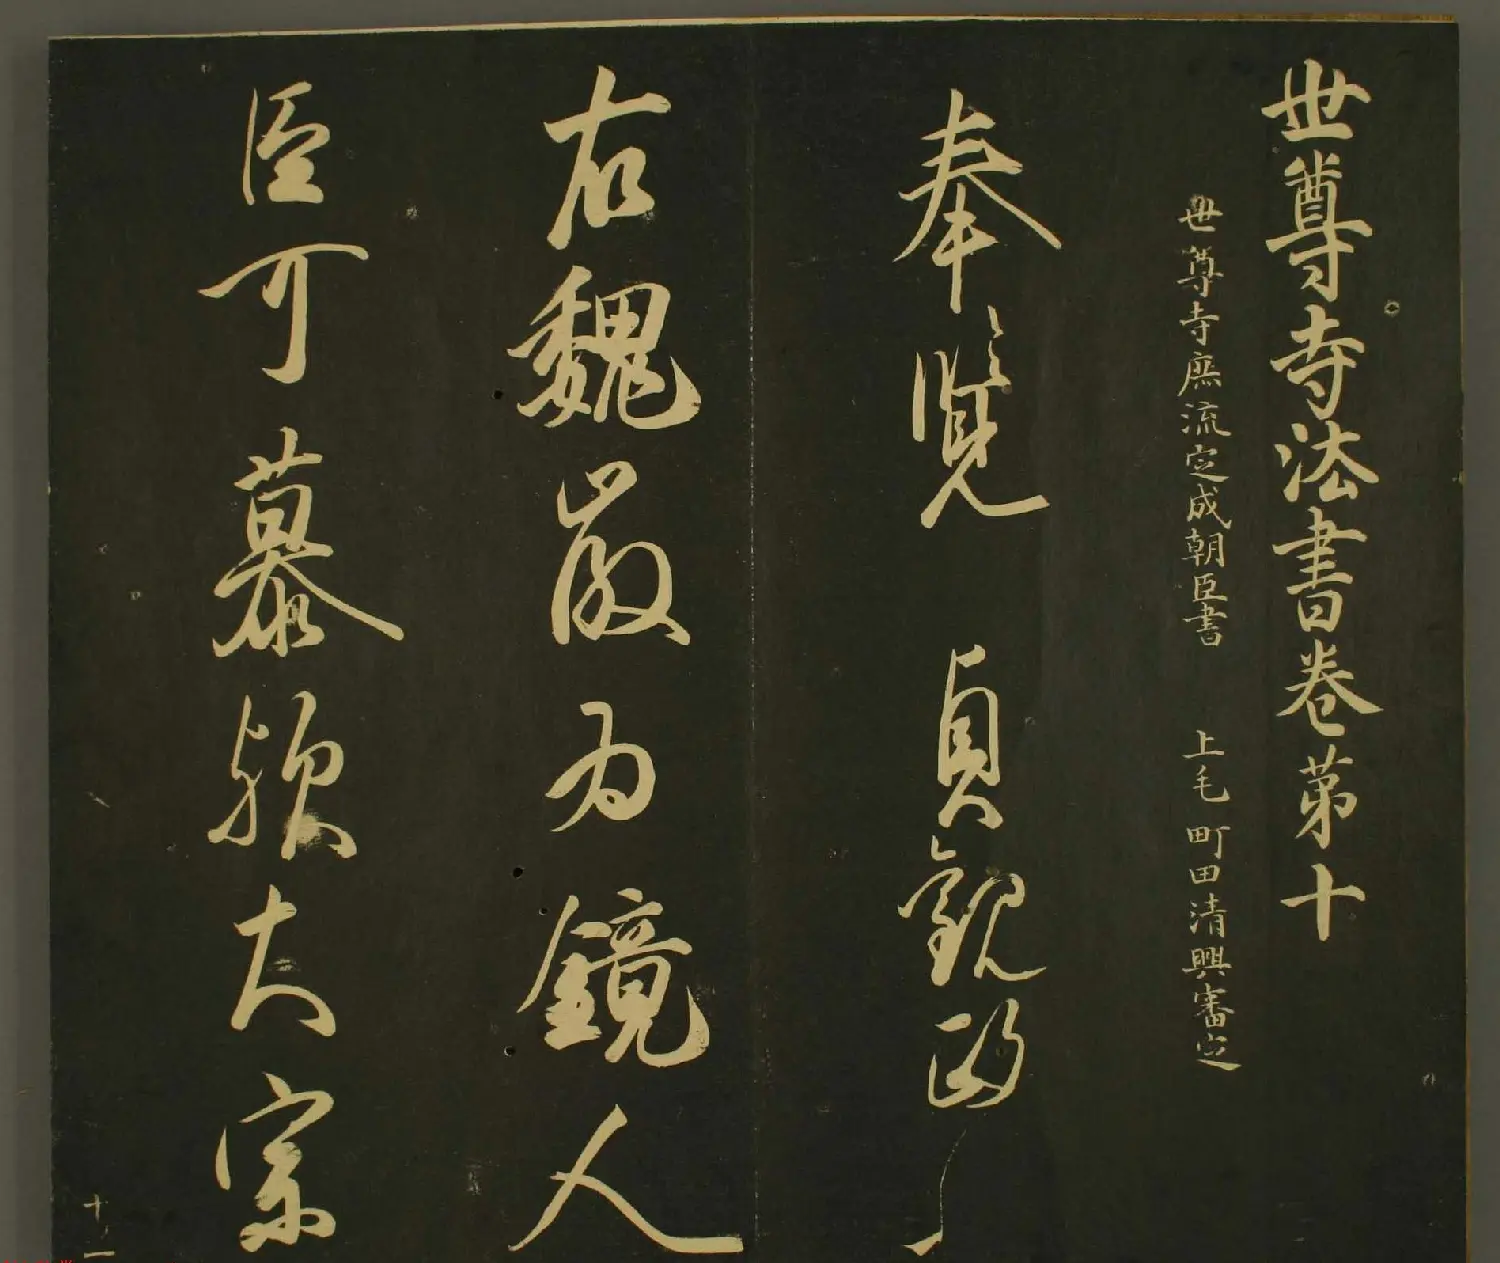 世尊寺法書卷第十
世尊寺庶流定成朝臣書 上毛町田清興審定
奉覽 貞觀政
右魏徴為鏡人
臣可慕歟大宗
十ノ一